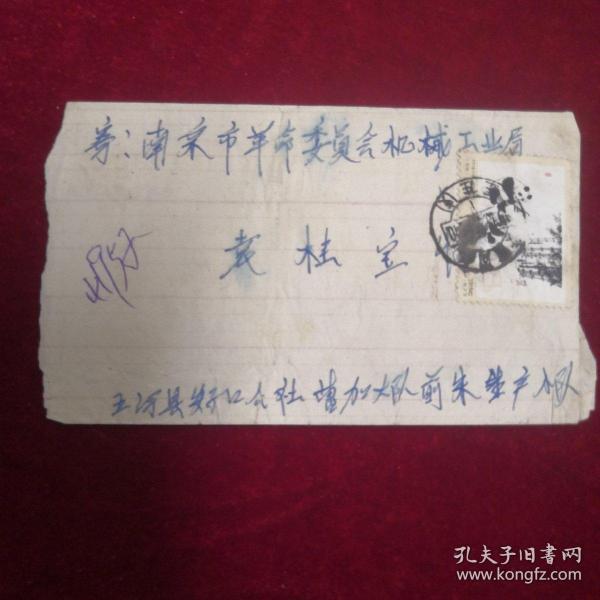 寄：南京市革命委員会机械工业局
袁桂宝
五河县 口公社 加大队前朱生产小队
孔夫子旧书网
www.kongfz.com